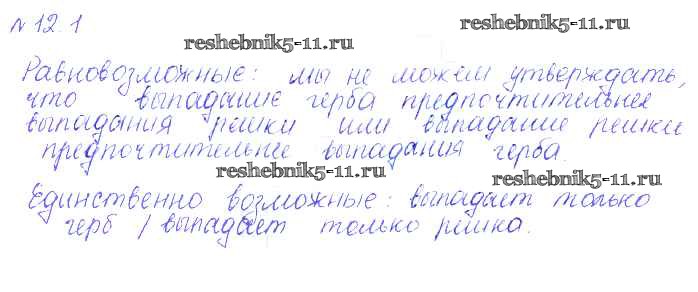 № 12.1
reshebnik5-11.ru
Равновозможные: мы не можем утверждать,
что выпадание герба предпочтительнее
выпадания решки или выпадание решки
предпочтительнее выпадания герба.
reshebnik5-11.ru
reshebnik5-11.ru
Единственно возможные: выпадает только
герб / выпадает только решка.